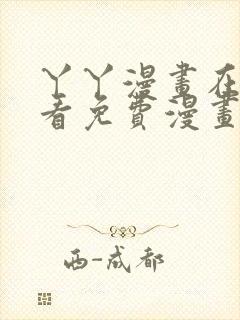 丫丫漫畫在
看免費漫畫
西-成都